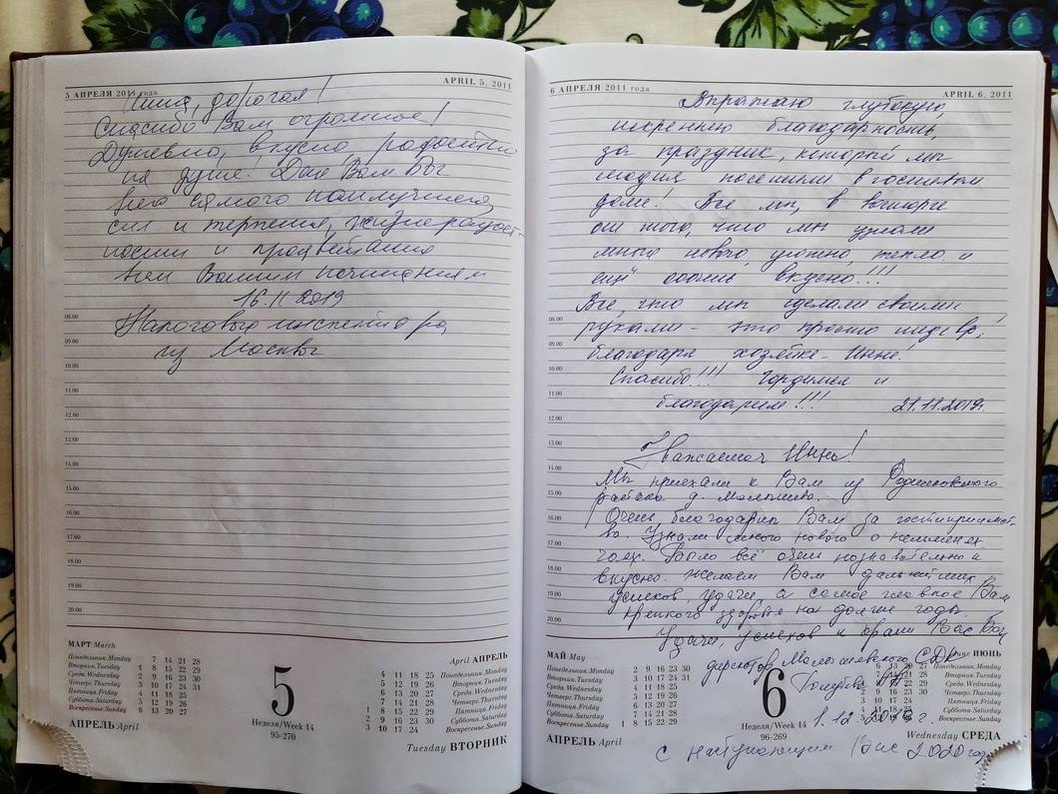 5 АПРЕЛЯ 2011 года
APRIL 5, 2011
Инна, дорогая!
Спасибо Вам огромное!
Душевно, вкусно, радостно
на душе! Дай Вам Бог
всего самого наилучшего,
сил и терпения, жизнерадост-
ности и процветания
всем Вашим начинаниям
16.11 2019
Налоговые инспектора
из Москвы
08.00
09.00
10.00
11.00
12.00
13.00
14.00
15.00
16.00
17.00
18.00
19.00
20.00
МАРТ March
Понедельник.Monday 7 14 21 28
Вторник.Tuesday 1 8 15 22 29
Среда.Wednesday 2 9 16 23 30
Четверг.Thursday 3 10 17 24 31
Пятница.Friday 4 11 18 25
Суббота.Saturday 5 12 19 26
Воскресенье.Sunday 6 13 20 27
АПРЕЛЬ April
5
Неделя/Week 14
95-270
April АПРЕЛЬ
4 11 18 25 Понедельник.Monday
5 12 19 26 Вторник.Tuesday
6 13 20 27 Среда.Wednesday
7 14 21 28 Четверг.Thursday
1 8 15 22 29 Пятница.Friday
2 9 16 23 30 Суббота.Saturday
3 10 17 24 Воскресенье.Sunday
Tuesday ВТОРНИК
6 АПРЕЛЯ 2011 года
APRIL 6, 2011
Выражаю глубокую,
искреннюю благодарность,
за праздник, который мы
сегодня посетили в гостевом
доме! Все мы, в восторге
от того, что мы узнали
много нового, уютно, тепло и
ещё очень вкусно!!!
Всё, что мы сделали своими
руками - это просто шедевр,
благодаря хозяйке - Инне!
Спасибо!!! Гордимся и
благодарим!!! 21.11.2019г.
Уважаемая Инна!
Мы приехали к Вам из Родниковского
района д. Малышево.
Очень благодарны Вам за гостеприимст-
во. Узнали много нового о
Было всё очень познавательно и
вкусно. Желаем Вам дальнейших
успехов, удачи, а самое главное Вам
крепкого здоровья на долгие годы.
Удачи, успехов и храни Вас Бог
директор Малышевского СДК
1.12.2019г.
с наступающим Вас 2020 годом
08.00
09.00
10.00
11.00
12.00
13.00
14.00
15.00
16.00
17.00
18.00
19.00
20.00
МАЙ May
Понедельник.Monday 2 9 16 23 30
Вторник.Tuesday 3 10 17 24 31
Среда.Wednesday 4 11 18 25
Четверг.Thursday 5 12 19 26
Пятница.Friday 6 13 20 27
Суббота.Saturday 7 14 21 28
Воскресенье.Sunday 1 8 15 22 29
АПРЕЛЬ April
6
Неделя/Week 14
96-269
ИЮНЬ
Понедельник.Monday
Вторник.Tuesday
Среда.Wednesday
Четверг.Thursday
Пятница.Friday
Суббота.Saturday
Воскресенье.Sunday
Wednesday СРЕДА